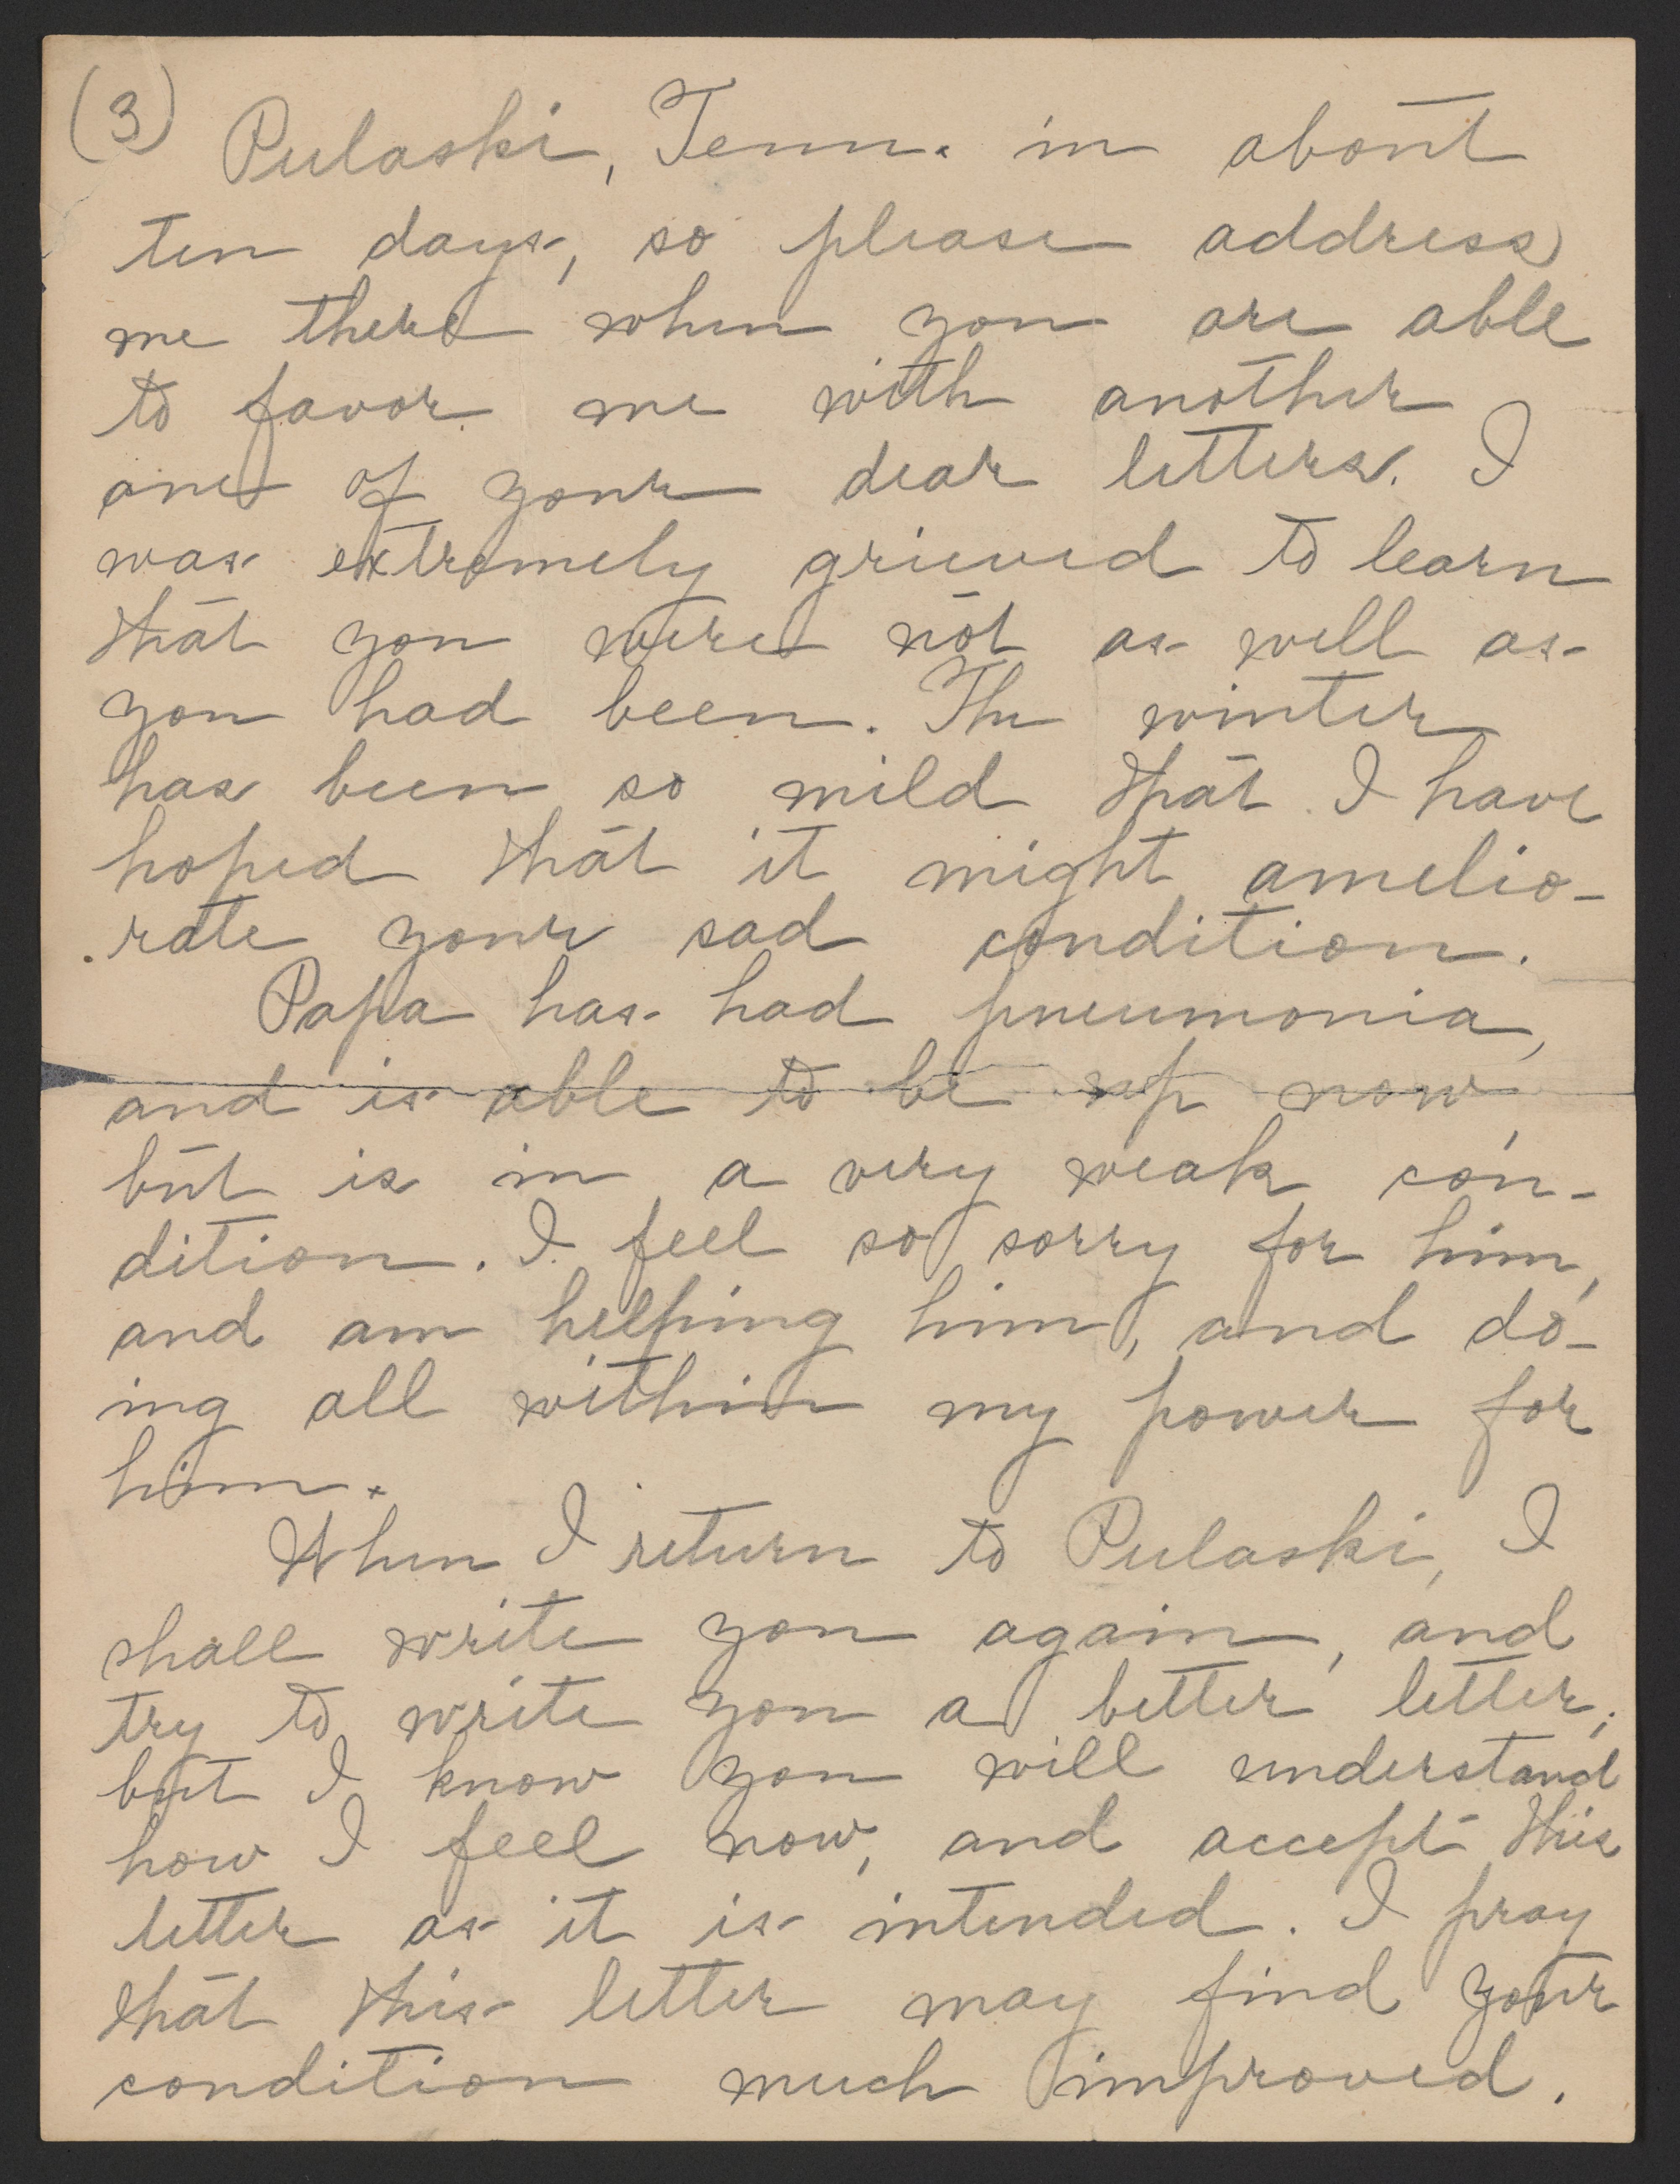 (3) Pulaski, Tenn. in about
ten days, so please address
me there when you are able
to favor me with another
one of your dear letters. I
was extremely grieved to learn
that you were not as well as
you had been. The winter
has been so mild that I have
hoped that it might amelio-
rate your sad condition.
Papa has had pneumonia,
and is able to be up now,
but is in a very weak con-
dition. I feel so sorry for him,
and am helping him, and do-
ing all within my power for
him.
When I return to Pulaski, I
shall write you again, and
try to write you a better letter;
but I know you will understand
how I feel now, and accept this
letter as it is intended. I pray
that this letter may find your
condition much improved.